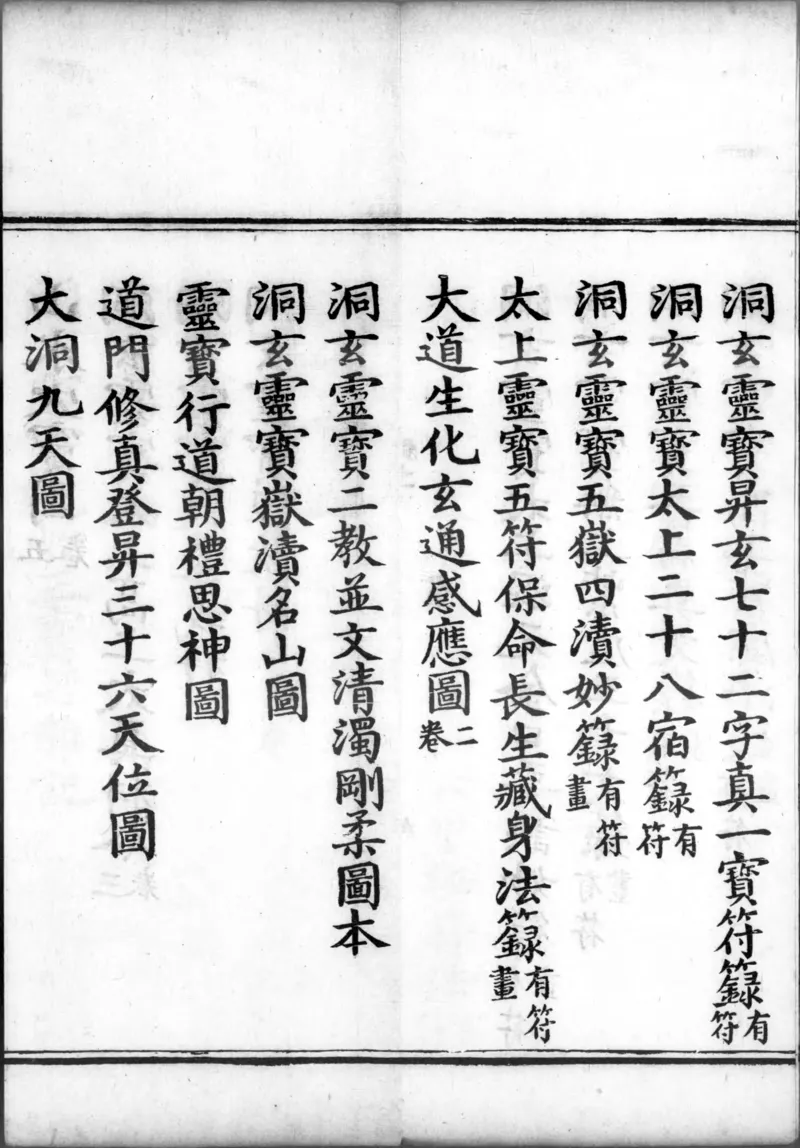 洞玄靈寶昇玄七十二字真一寶符籙有符
洞玄靈寶太上二十八宿籙有符
洞玄靈寶五嶽四瀆妙籙有符畫
太上靈寶五符保命長生藏身法籙有符畫
大道生化玄通感應圖二卷
洞玄靈寶二教並文清濁剛柔圖本
洞玄靈寶嶽瀆名山圖
靈寶行道朝禮思神圖
道門修真登昇三十六天位圖
大洞九天圖